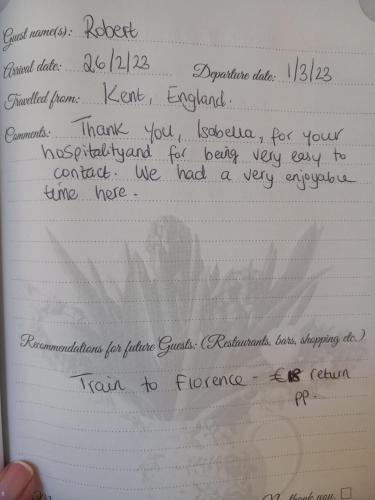 Guest name(s): Robert
Arrival date: 26/2/23 Departure date: 1/3/23
Travelled from: Kent, England.
Comments: Thank you, Isabella, for your
hospitality and for being very easy to
contact. We had a very enjoyable
time here.
Recommendations for future Guests: (Restaurants, bars, shopping etc.)
Train to Florence - €18 return
pp.
thank you